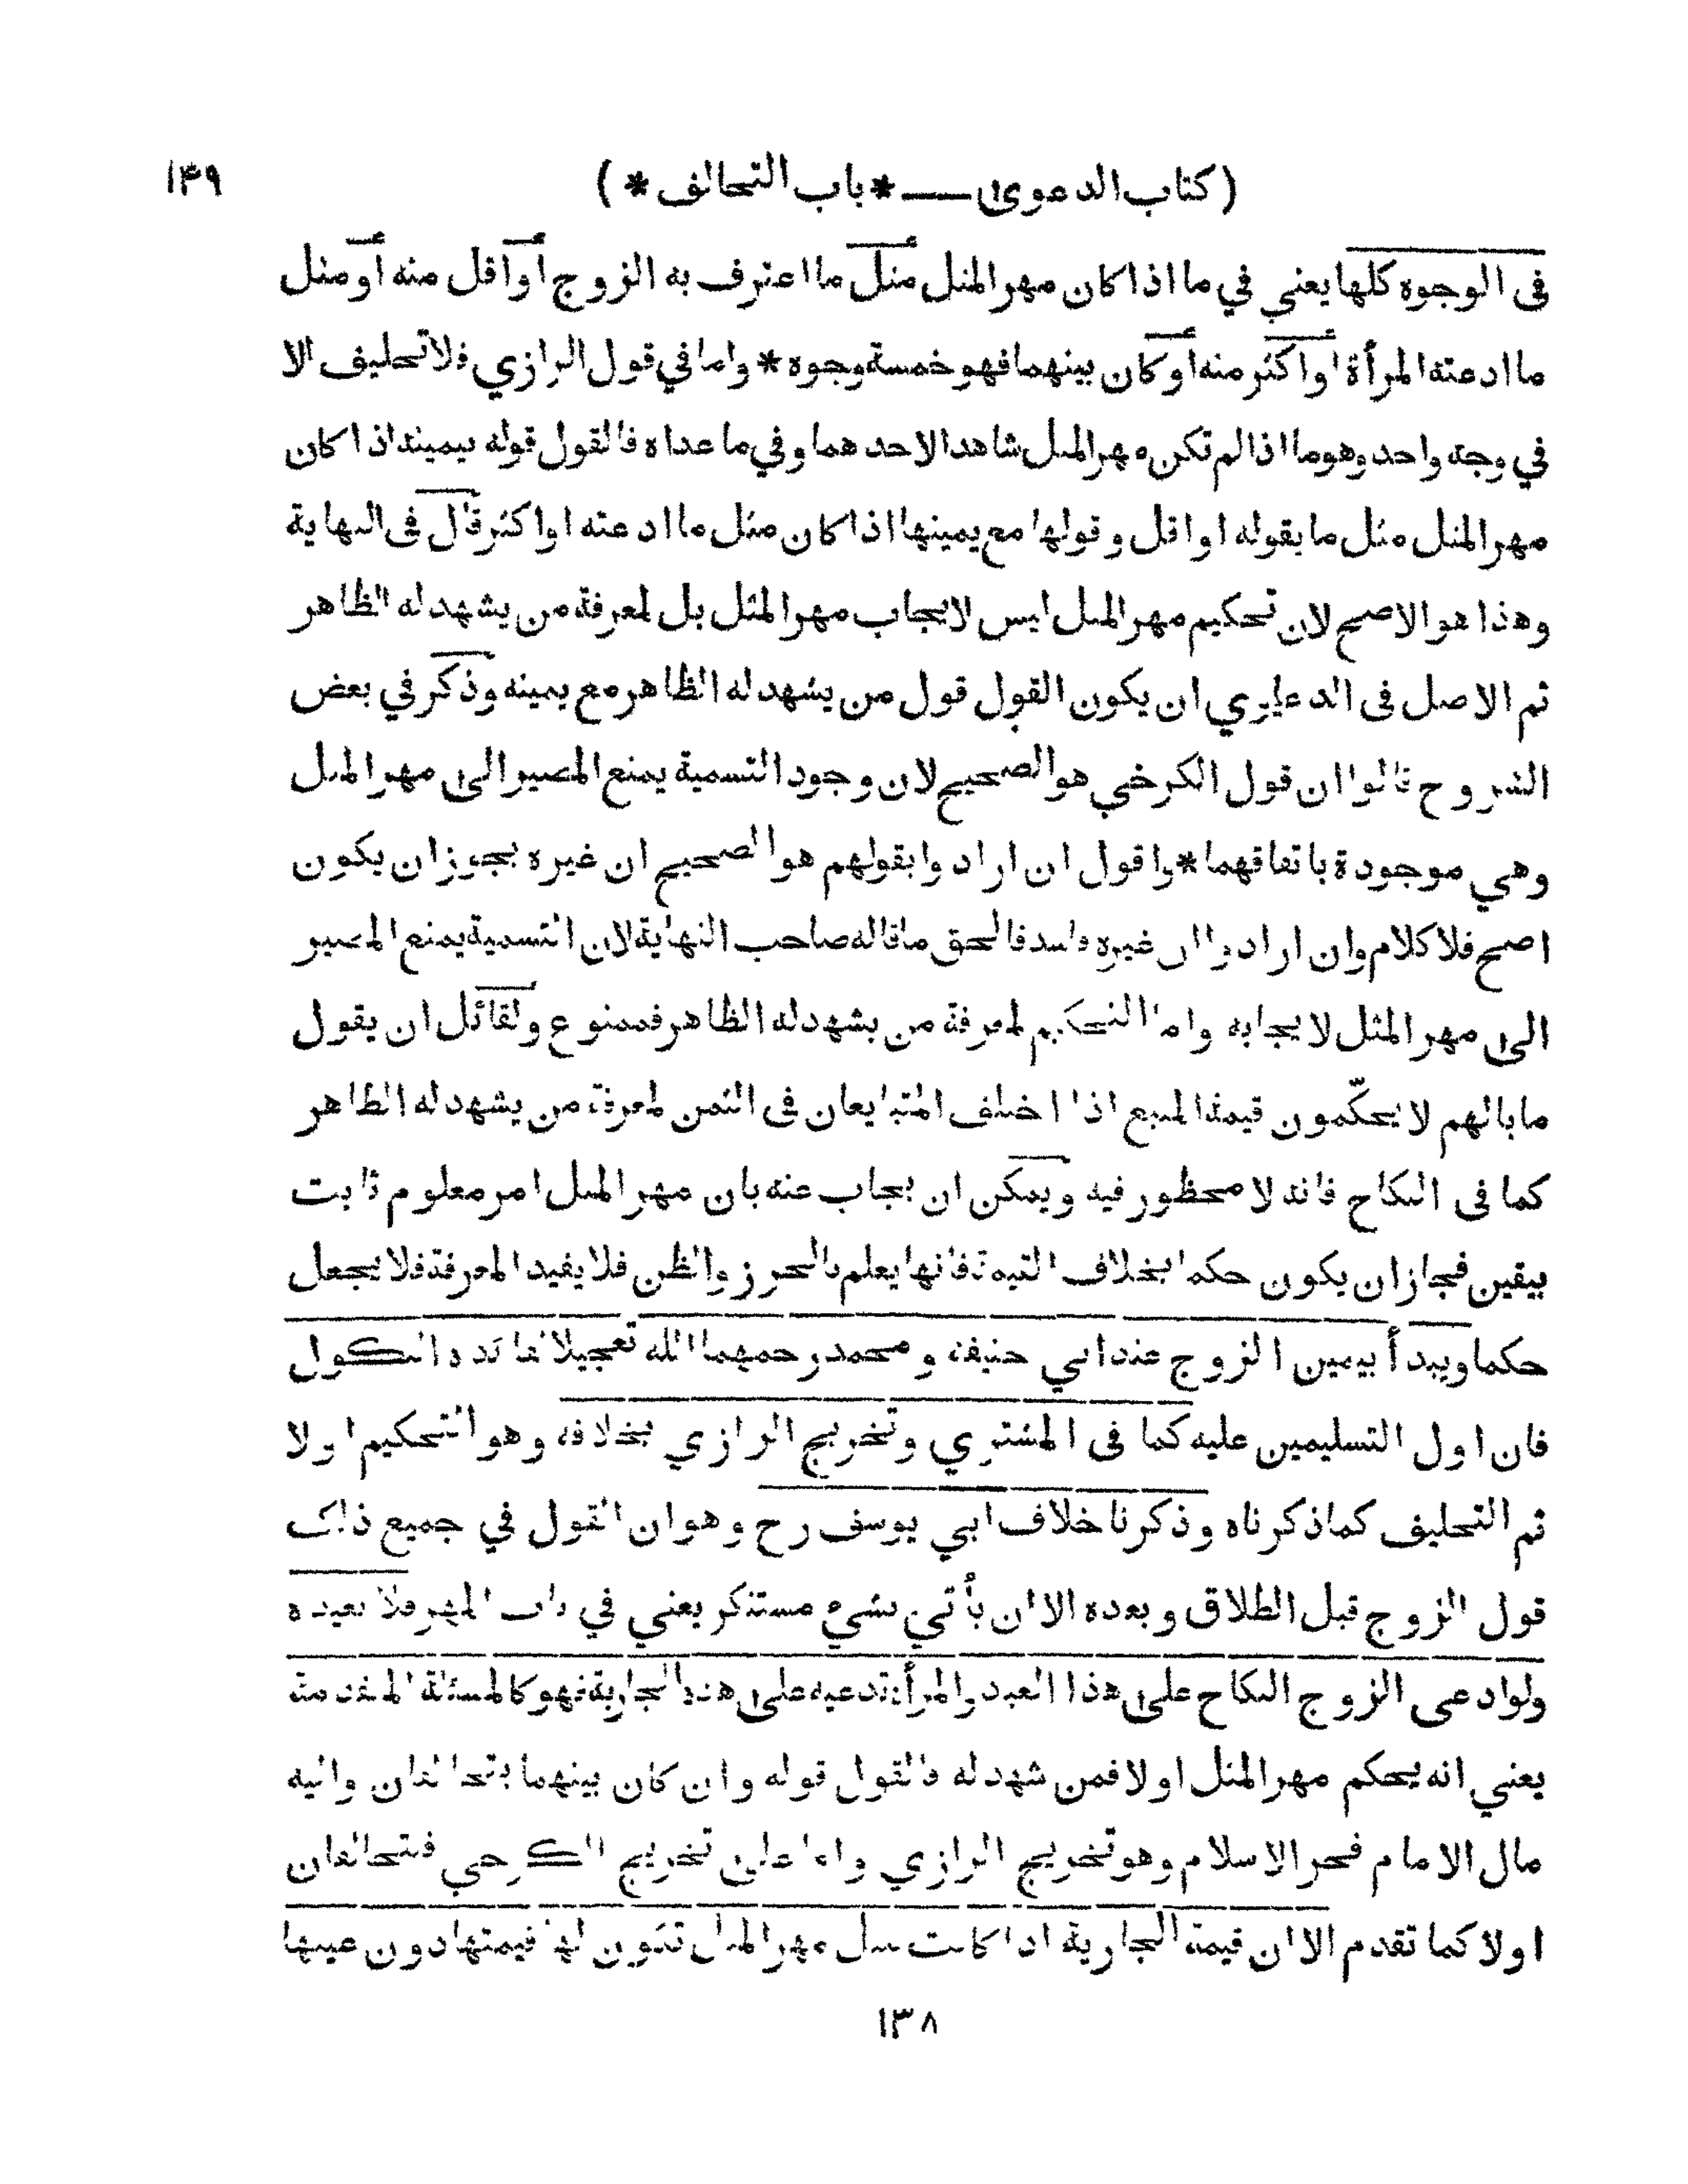 ( كتاب الدعوى — * باب التحالف * ) ١٣٩
فى الوجوه كلها يعني في ما اذا كان مهر المثل مثل ما اعترف به الزوج أو اقل منه أو مثل
ما ادعته المرأة او اكثر منه او كان بينهما فهو خمسة وجوه * واما في قول الرازي فلا تحليف الا
في وجه واحد وهو ما اذا لم تكن مهر المثل شاهدا لاحدهما وفي ما عداه فالقول قوله بيمينه اذا كان
مهر المثل مثل ما يقوله او اقل وقولها مع يمينها اذا كان مثل ما ادعته او اكثر قال فى النهاية
وهذا هو الاصح لان تحكيم مهر المثل ليس لايجاب مهر المثل بل لمعرفة من يشهد له الظاهر
ثم الاصل فى الدعاوي ان يكون القول قول من يشهد له الظاهر مع يمينه وذكر في بعض
الشروح قالوا ان قول الكرخي هو الصحيح لان وجود التسمية يمنع المصير الى مهر المثل
وهي موجودة باتفاقهما * واقول ان ارادوا بقولهم هو الصحيح ان غيره يجوز ان يكون
اصح فلا كلام وان ارادوا ان غيره فاسد فالحق ما قاله صاحب النهاية لان التسمية يمنع المصير
الى مهر المثل لايجابه واما التحكيم لمعرفة من يشهد له الظاهر فممنوع ولقائل ان يقول
ما بالهم لا يحكّمون قيمة المبيع اذا اختلف المتبايعان فى الثمن لمعرفة من يشهد له الظاهر
كما فى النكاح فانه لا محظور فيه ويمكن ان يجاب عنه بان مهر المثل امر معلوم ثابت
بيقين فجاز ان يكون حكما بخلاف القيمة فانها يعلم بالحرز والظن فلا يفيد المعرفة فلا يجعل
حكما ويبدأ بيمين الزوج عند ابي حنيفة ومحمد رحمهما الله تعجيلا لفائدة النكول
فان اول التسليمين عليه كما فى المشتري وتخريج الرازي بخلافه وهو التحكيم اولا
ثم التحليف كما ذكرناه وذكرنا خلاف ابي يوسف رح وهو ان القول في جميع ذلك
قول الزوج قبل الطلاق وبعده الا ان يأتي بشيء مستنكر يعني في باب المهر فلا نعيده
ولو ادعى الزوج النكاح على هذا العبد والمرأة تدعيه على هذه الجارية فهو كالمسئلة المتقدمة
يعني انه يحكم مهر المثل اولا فمن شهد له فالقول قوله وان كان بينهما يتحالفان واليه
مال الامام فخر الاسلام وهو تخريج الرازي واما على تخريج الكرخي فيتحالفان
اولا كما تقدم الا ان قيمة الجارية اذا كانت مثل مهر المثل تكون لها قيمتها دون عينها
١٣٨